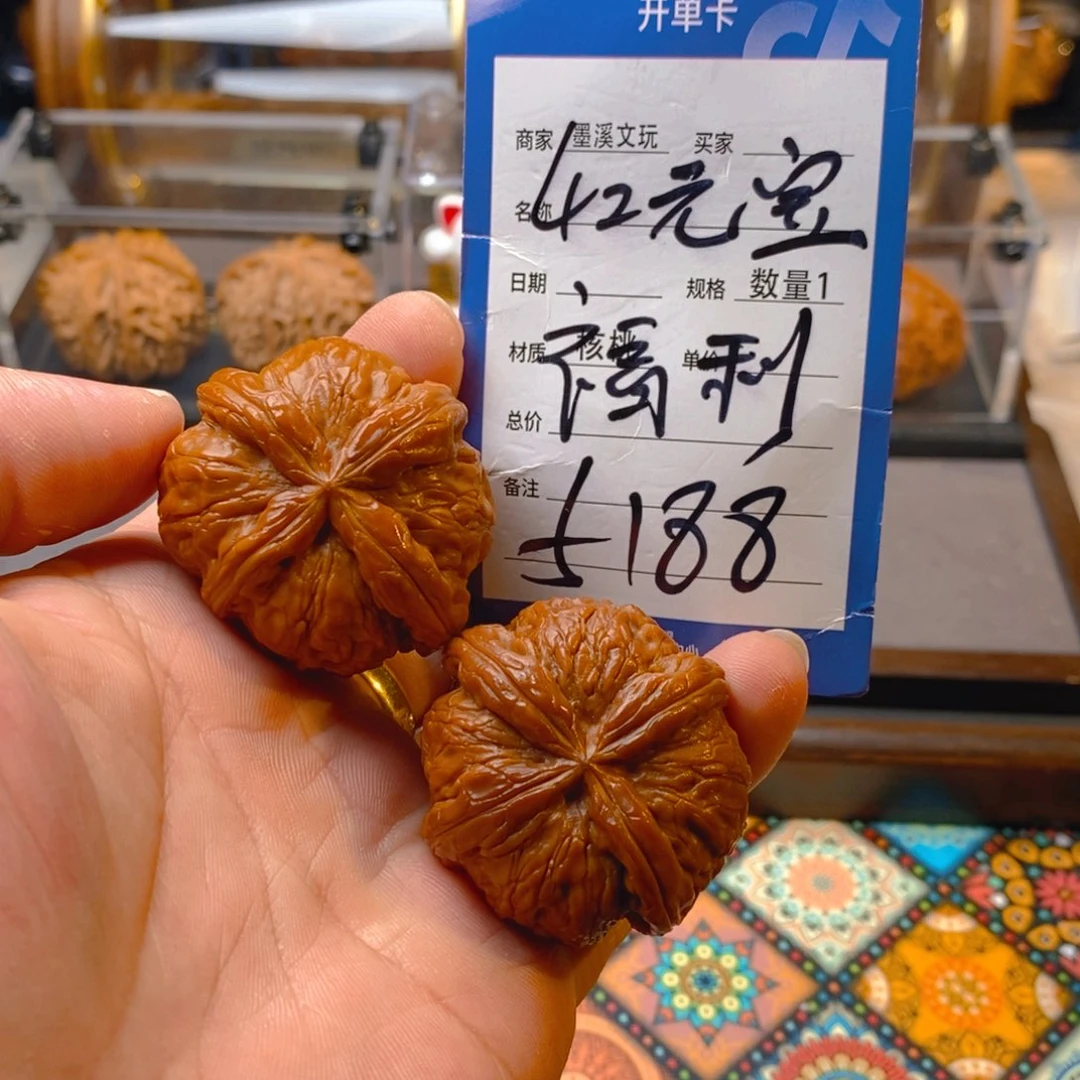 开单卡
商家 墨溪文玩 买家
名称 42元宝
日期 规格 数量1
材质 核桃 单价
福利
总价
备注
5188